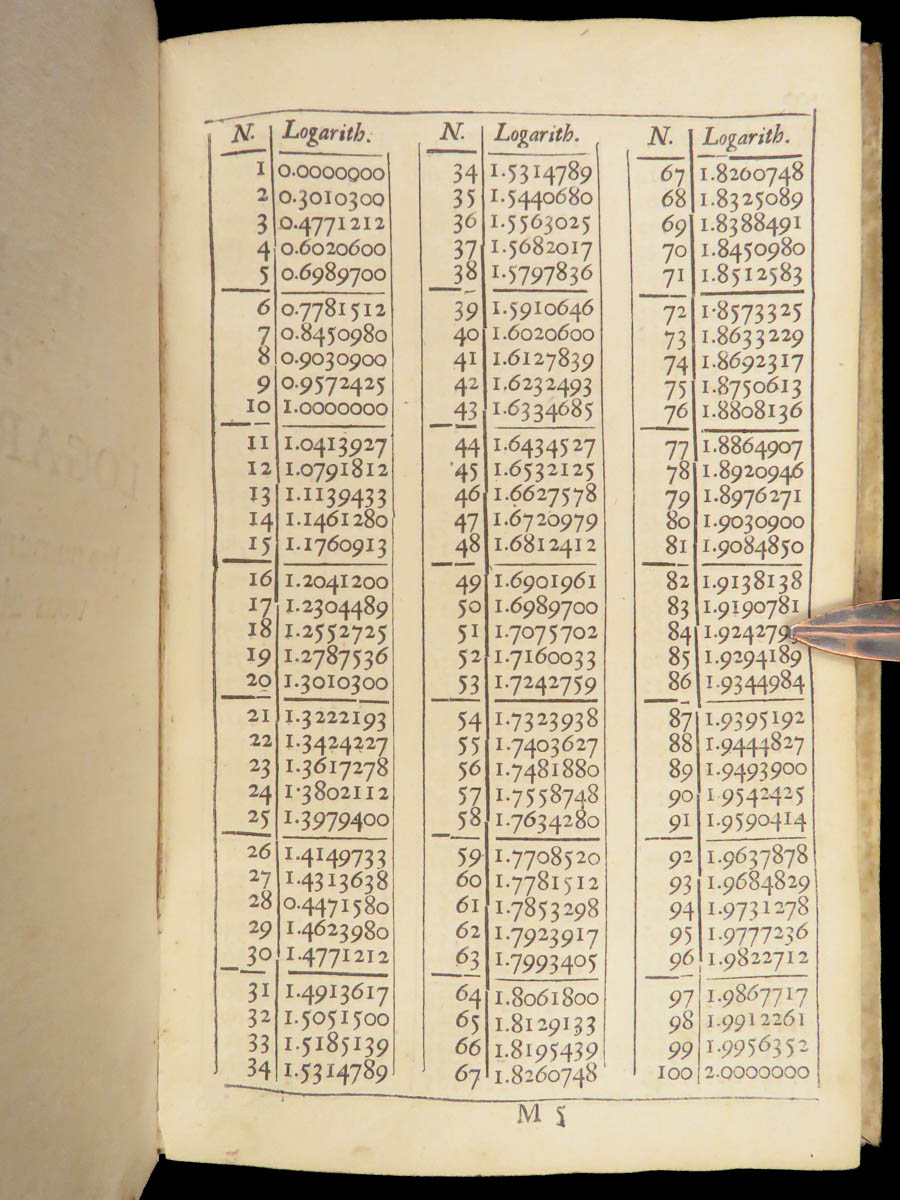 N. Logarith.
1 0.0000000
2 0.3010300
3 0.4771212
4 0.6020600
5 0.6989700
6 0.7781512
7 0.8450980
8 0.9030900
9 0.9572425
10 1.0000000
11 1.0413927
12 1.0791812
13 1.1139433
14 1.1461280
15 1.1760913
16 1.2041200
17 1.2304489
18 1.2552725
19 1.2787536
20 1.3010300
21 1.3222193
22 1.3424227
23 1.3617278
24 1·3802112
25 1.3979400
26 1.4149733
27 1.4313638
28 0.4471580
29 1.4623980
30 1.4771212
31 1.4913617
32 1.5051500
33 1.5185139
34 1.5314789
N. Logarith.
34 1.5314789
35 1.5440680
36 1.5563025
37 1.5682017
38 1.5797836
39 1.5910646
40 1.6020600
41 1.6127839
42 1.6232493
43 1.6334685
44 1.6434527
45 1.6532125
46 1.6627578
47 1.6720979
48 1.6812412
49 1.6901961
50 1.6989700
51 1.7075702
52 1.7160033
53 1.7242759
54 1.7323938
55 1.7403627
56 1.7481880
57 1.7558748
58 1.7634280
59 1.7708520
60 1.7781512
61 1.7853298
62 1.7923917
63 1.7993405
64 1.8061800
65 1.8129133
66 1.8195439
67 1.8260748
N. Logarith.
67 1.8260748
68 1.8325089
69 1.8388491
70 1.8450980
71 1.8512583
72 1·8573325
73 1.8633229
74 1.8692317
75 1.8750613
76 1.8808136
77 1.8864907
78 1.8920946
79 1.8976271
80 1.9030900
81 1.9084850
82 1.9138138
83 1.9190781
84
85 1.9294189
86 1.9344984
87 1.9395192
88 1.9444827
89 1.9493900
90 1 9542425
91 1.9590414
92 1.9637878
93 1.9684829
94 1.9731278
95 1.9777236
96 1.9822712
97 1.9867717
98 1.9912261
99 1.9956352
100 2.0000000
M 5